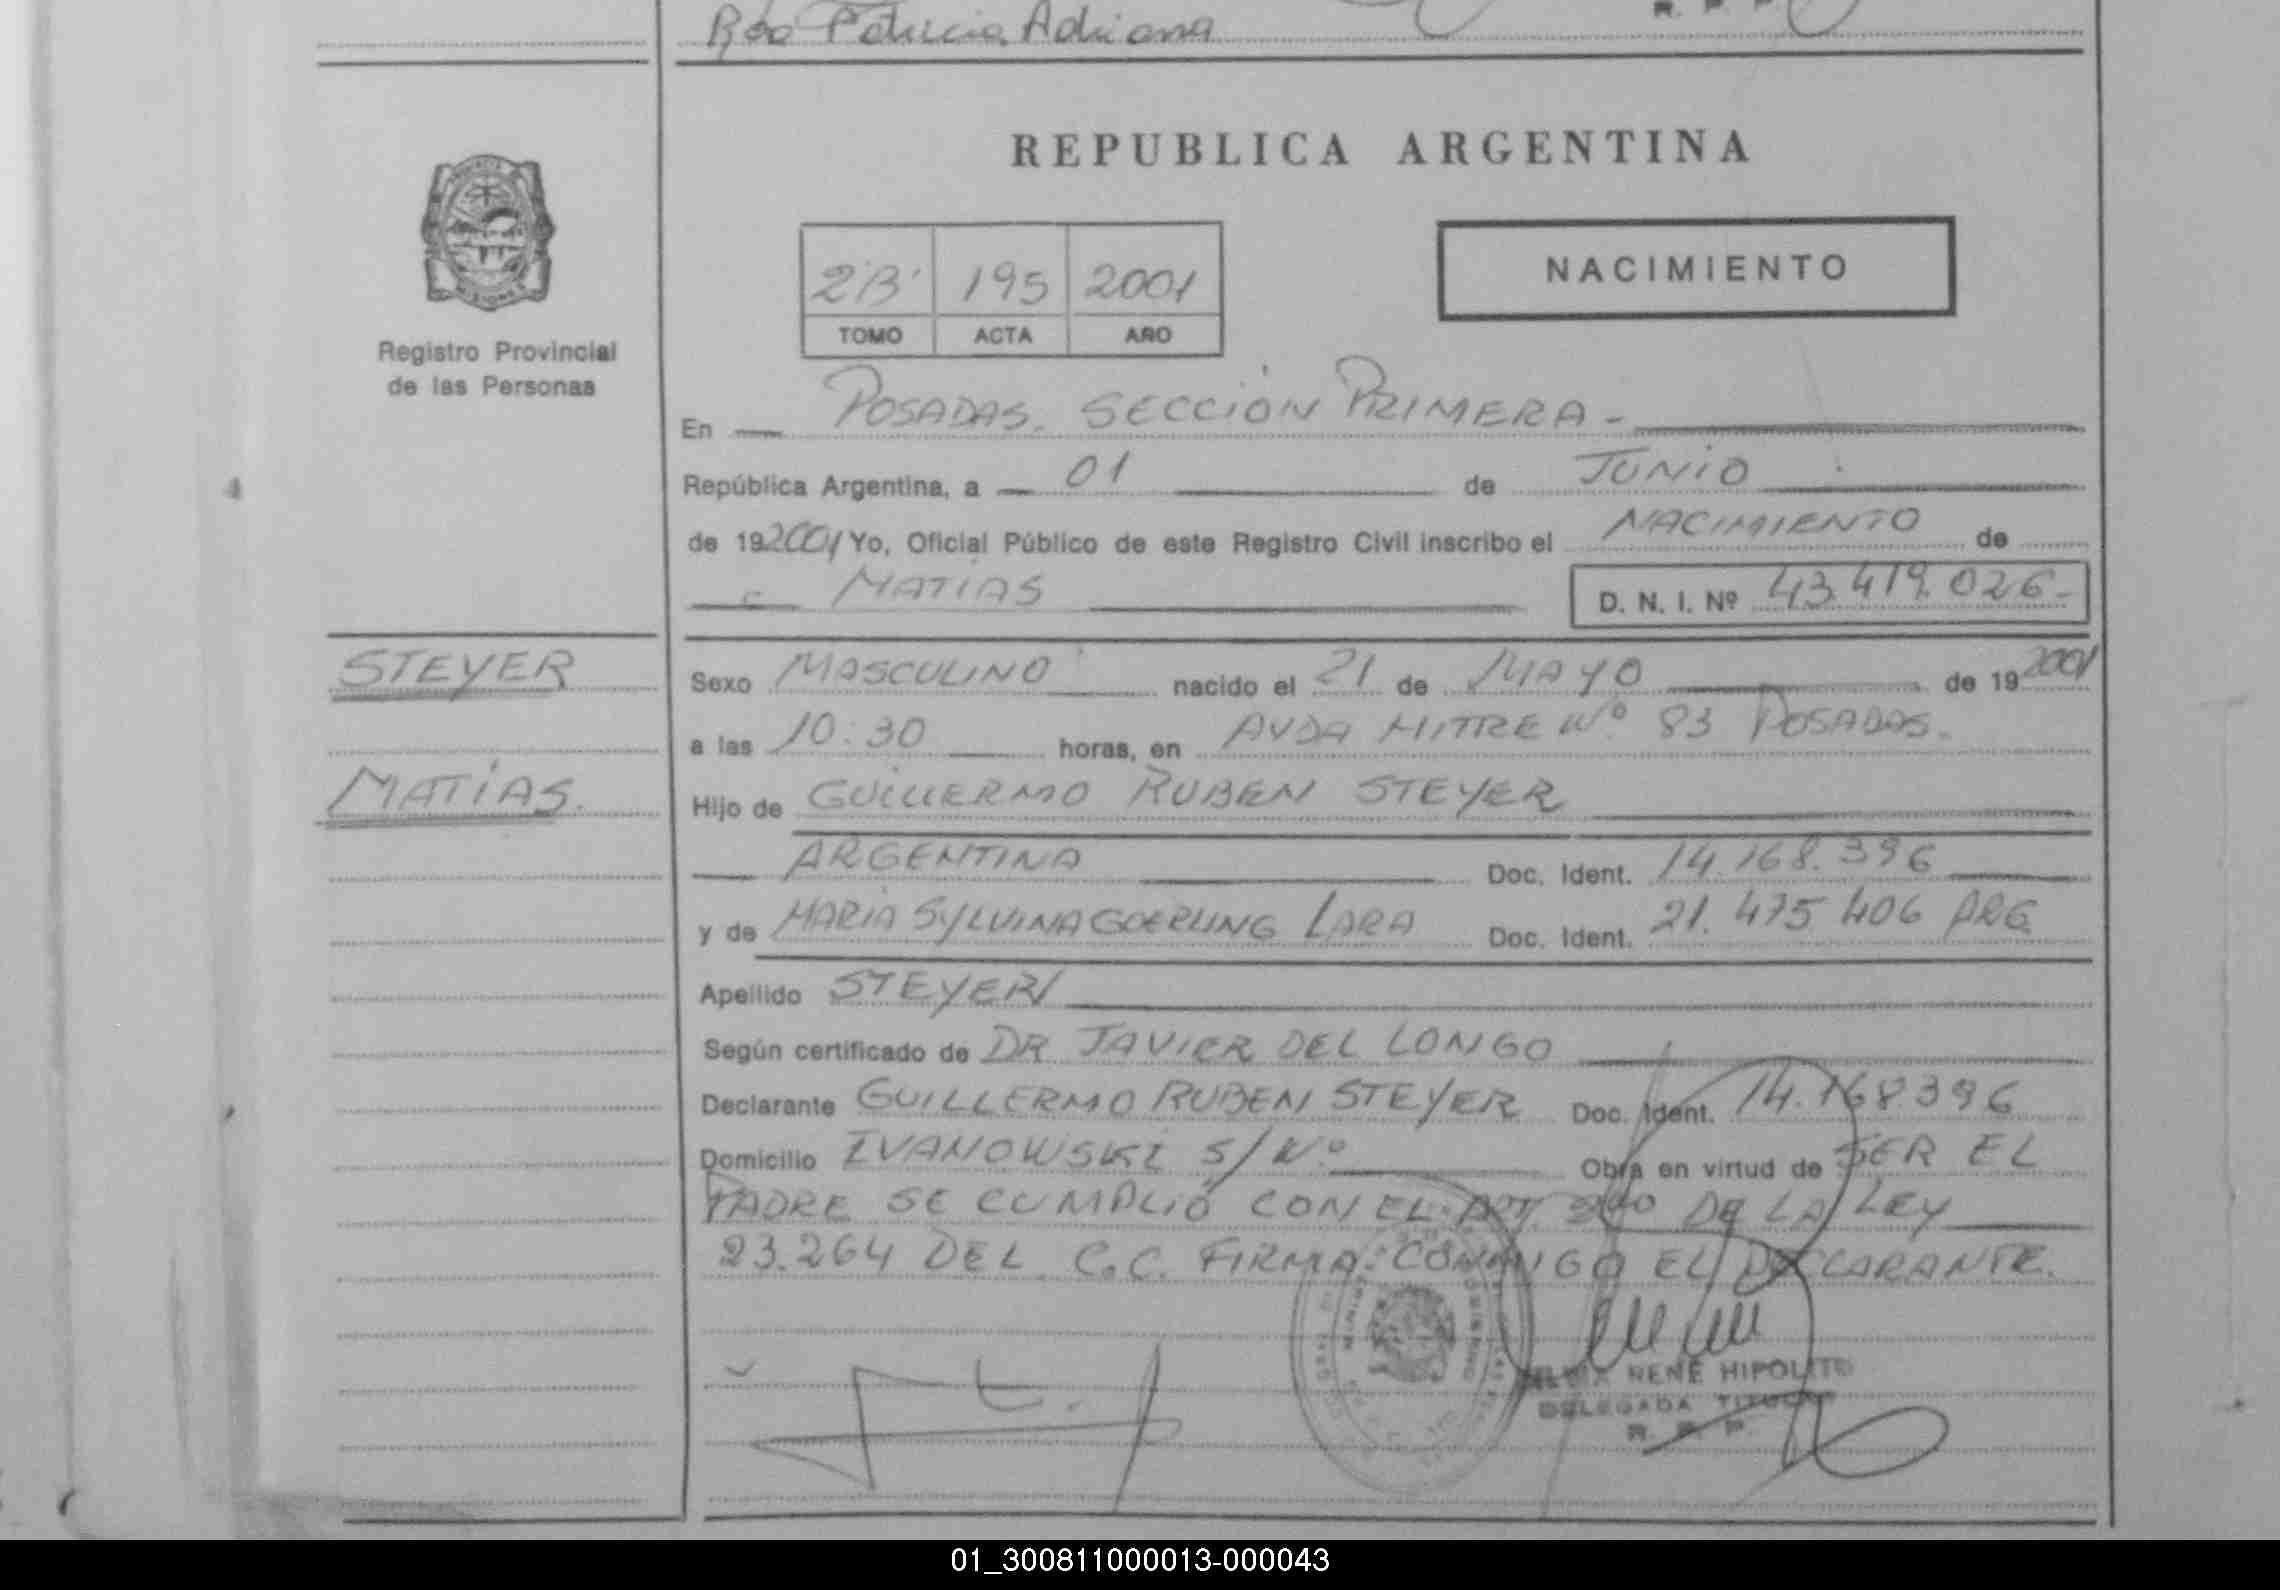 Patricia Adriana
REPUBLICA ARGENTINA
MISIONES
Registro Provincial
de las Personas
2'B' 195 2001
TOMO ACTA AÑO
NACIMIENTO
En POSADAS. SECCIÓN PRIMERA -
República Argentina, a 01 de JUNIO
de 192001 Yo, Oficial Público de este Registro Civil inscribo el NACIMIENTO de
MATÍAS D. N. I. Nº 43.419.026-
STEYER
Sexo MASCULINO nacido el 21 de MAYO de 19 2001
a las 10:30 horas, en AVDA MITRE Nº 83 POSADAS.
MATÍAS.
Hijo de GUILLERMO RUBEN STEYER
ARGENTINA Doc. Ident. 14.168.396
y de MARÍA SYLVINA GOERLING LARA Doc. Ident. 21.475.406 ARG.
Apellido STEYER/
Según certificado de DR JAVIER DEL LONGO
Declarante GUILLERMO RUBEN STEYER Doc. Ident. 14.168396
Domicilio IVANOWSKI S/Nº Obra en virtud de SER EL
PADRE SE CUMPLIÓ CON EL ART. DE LA LEY
23.264 DEL C.C. FIRMA CONMIGO EL DECLARANTE.
RENE HIPOLITO
DELEGADA TITULAR
R. P. P.
01_300811000013-000043